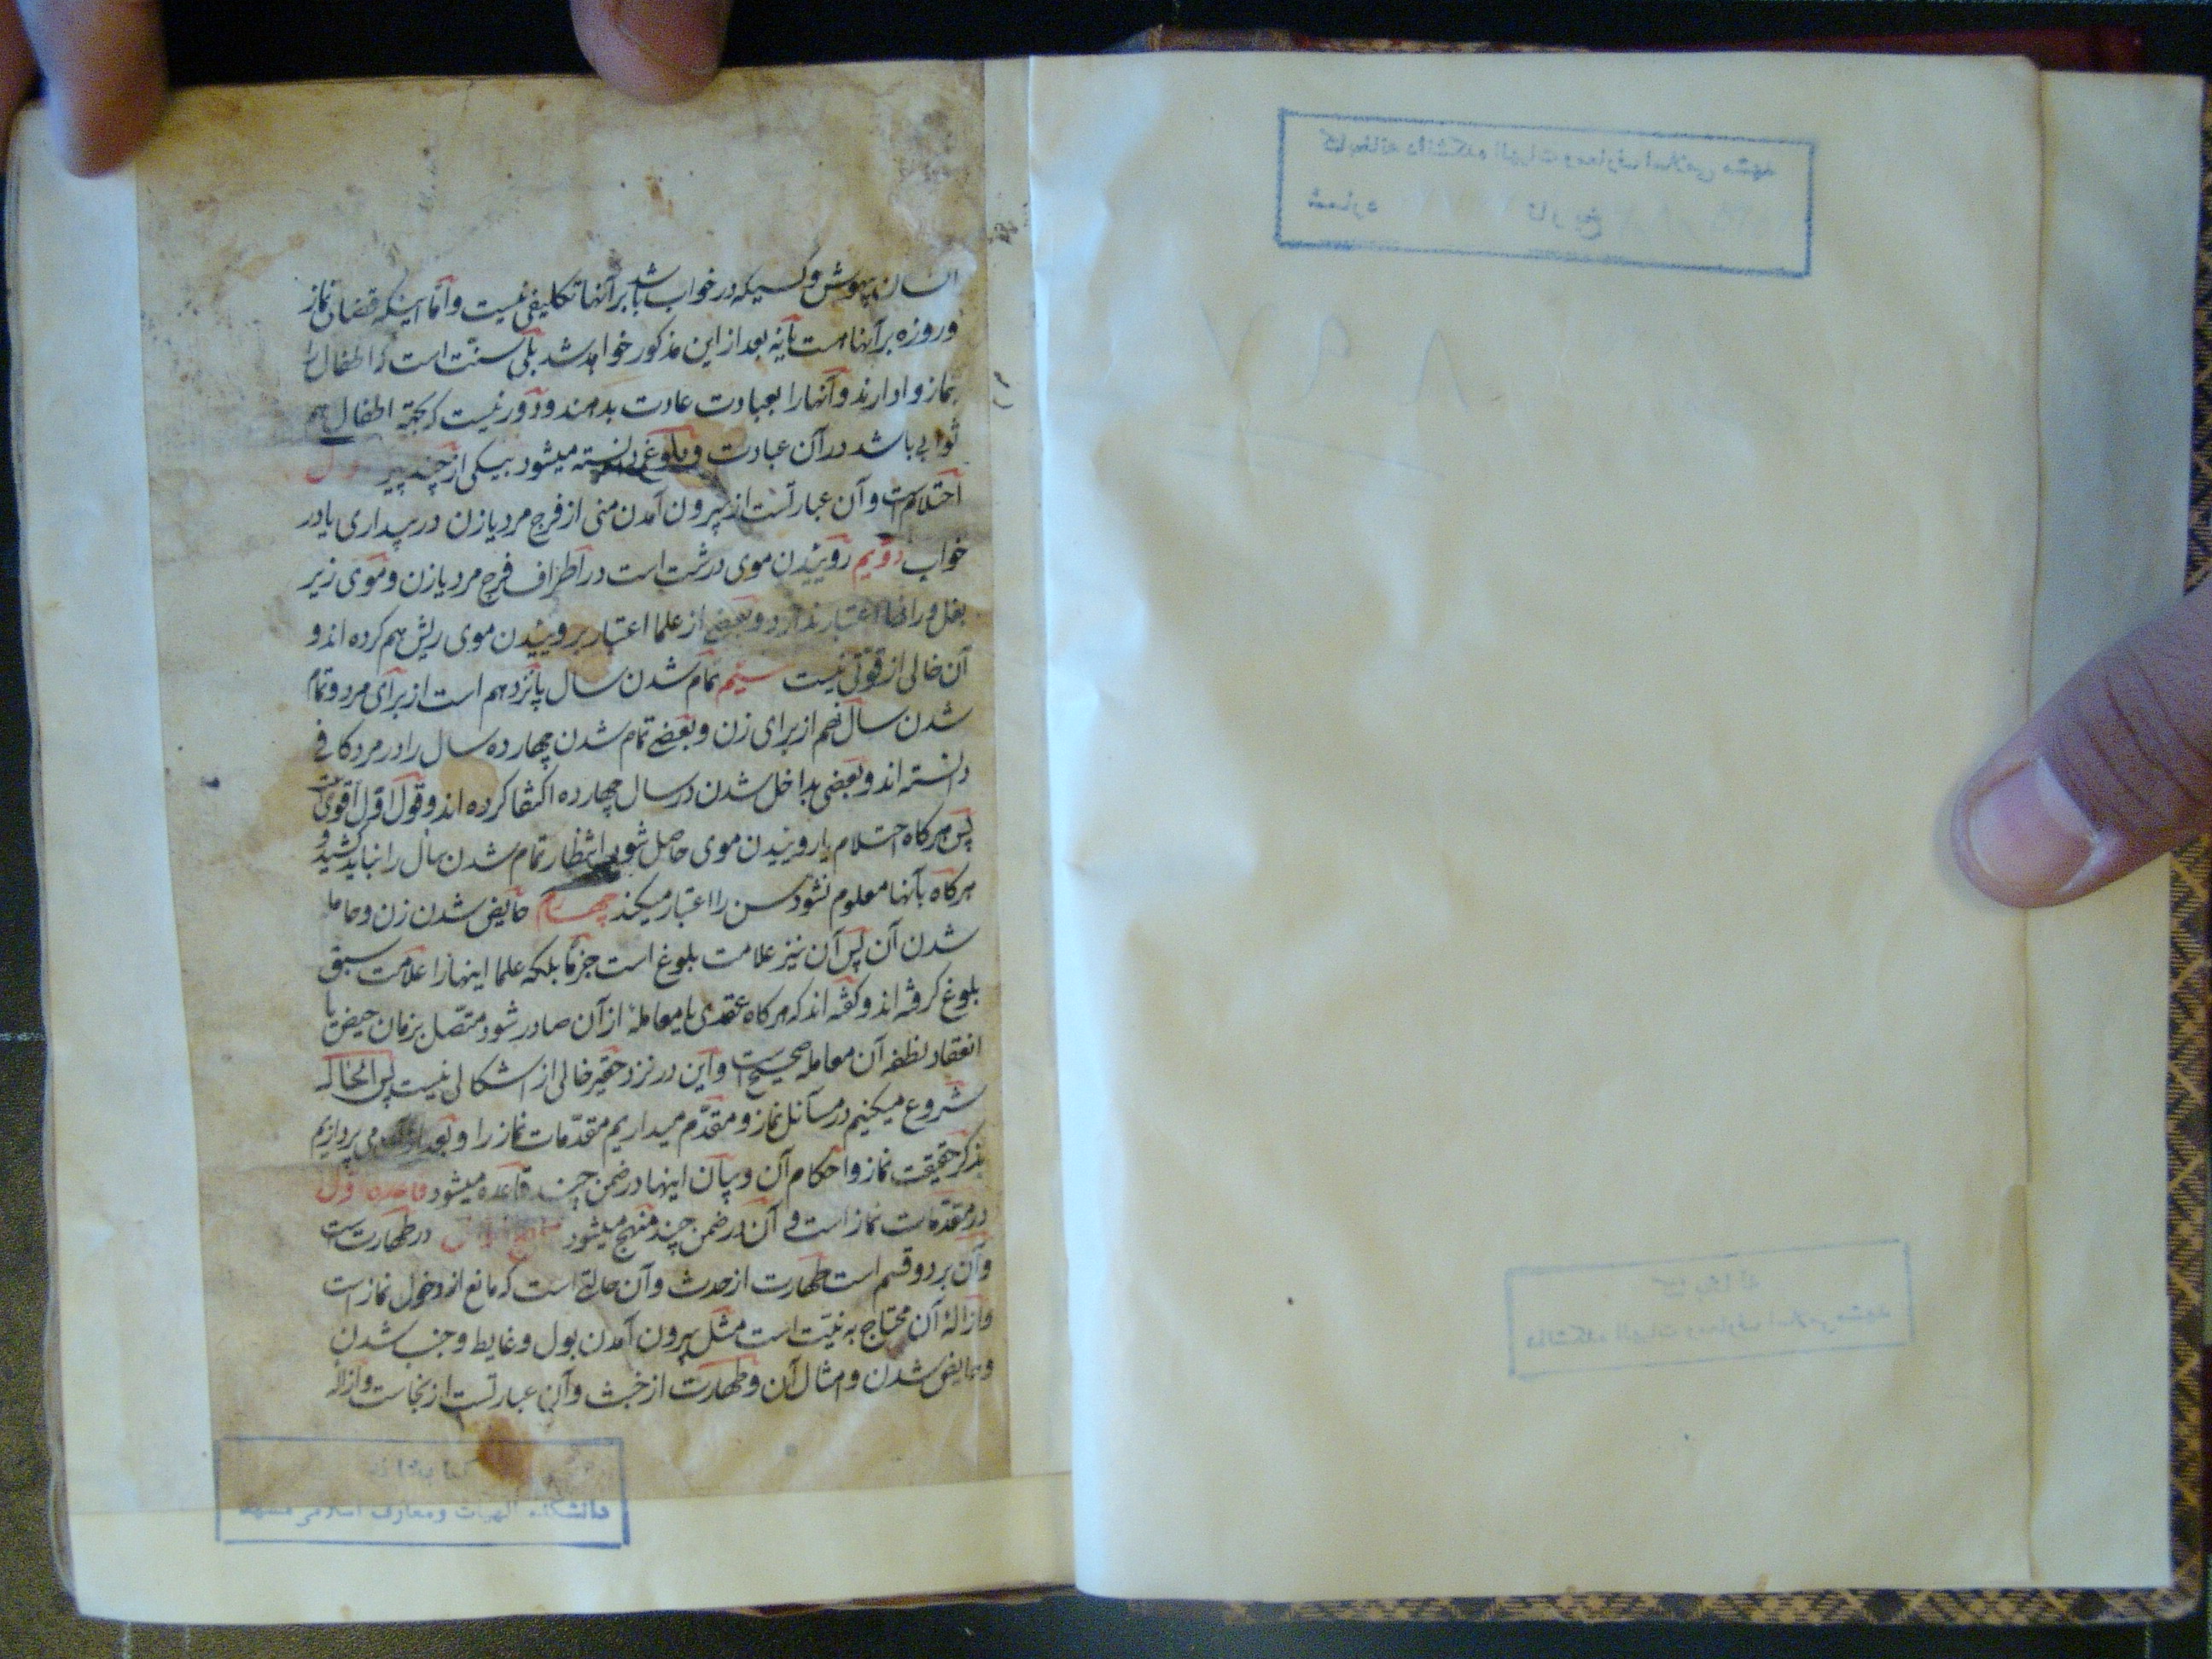 انسان بیهوش و کسیکه در خواب باشد بر آنها تکلیفی نیست و امّا اینکه قضای نماز
و روزه بر آنها هست یا نه بعد از این مذکور خواهد شد بلی سنّت است که اطفال را
بنماز وادارند و آنها را بعبادت عادت بدهند و دور نیست که بجهة اطفال هم
ثوابی باشد در آن عبادت و بلوغ دانسته میشود بیکی از چند چیز اول
احتلام است و آن عبارتست از بیرون آمدن منی از فرج مرد یا زن در بیداری یا در
خواب دویم روییدن موی درشت است در اطراف فرج مرد یا زن و موی زیر
بغل و رانها اعتبار ندارد و بعضی از علما اعتبار بروییدن موی ریش هم کرده اند و
آن خالی از قوتی نیست سیّم تمام شدن سال پانزدهم است از برای مرد و تمام
شدن سال نهم از برای زن و بعضی تمام شدن چهارده سال را در مرد کافی
دانسته اند و بعضی بداخل شدن در سال چهارده اکتفا کرده اند و قول اوّل اقوی است
پس هرکاه احتلام یا روییدن موی حاصل شود انتظار تمام شدن سال را نباید کشید و
هرکاه بآنها معلوم نشود سن را اعتبار میکنند چهارم حایض شدن زن و حامله
شدن آن پس آن نیز علامت بلوغ است جزمًا بلکه علما اینها را علامت سبق
بلوغ کرفته اند و کفته اند که هرکاه عقدی یا معامله از آن صادر شود متّصل بزمان حیض یا
انعقاد نطفه آن معامله صحیح است و این در نزد حقیر خالی از اشکالی نیست پس الحال که
شروع میکنیم در مسائل نماز و مقدّم میداریم مقدّمات نماز را و بعد از آن می پردازیم
بذکر حقیقت نماز و احکام آن و بیان اینها در ضمن چند قاعده میشود قاعده اول
در مقدّمات نماز است و آن در ضمن چند منهج میشود منهج اول در طهارت است
و آن بر دو قسم است طهارت از حدث و آن حالتی است که مانع از دخول نماز است
و ازالۀ آن محتاج به نیّت است مثل بیرون آمدن بول و غایط و جنب شدن
و حایض شدن و امثال آن و طهارت از خبث و آن عبارتست از نجاست و ازاله
کتابخانه
دانشکده الهیات و معارف اسلامی مشهد
کتابخانه دانشکده الهیات و معارف اسلامی مشهد
شماره تاریخ
کتابخانه
دانشکده الهیات و معارف اسلامی مشهد